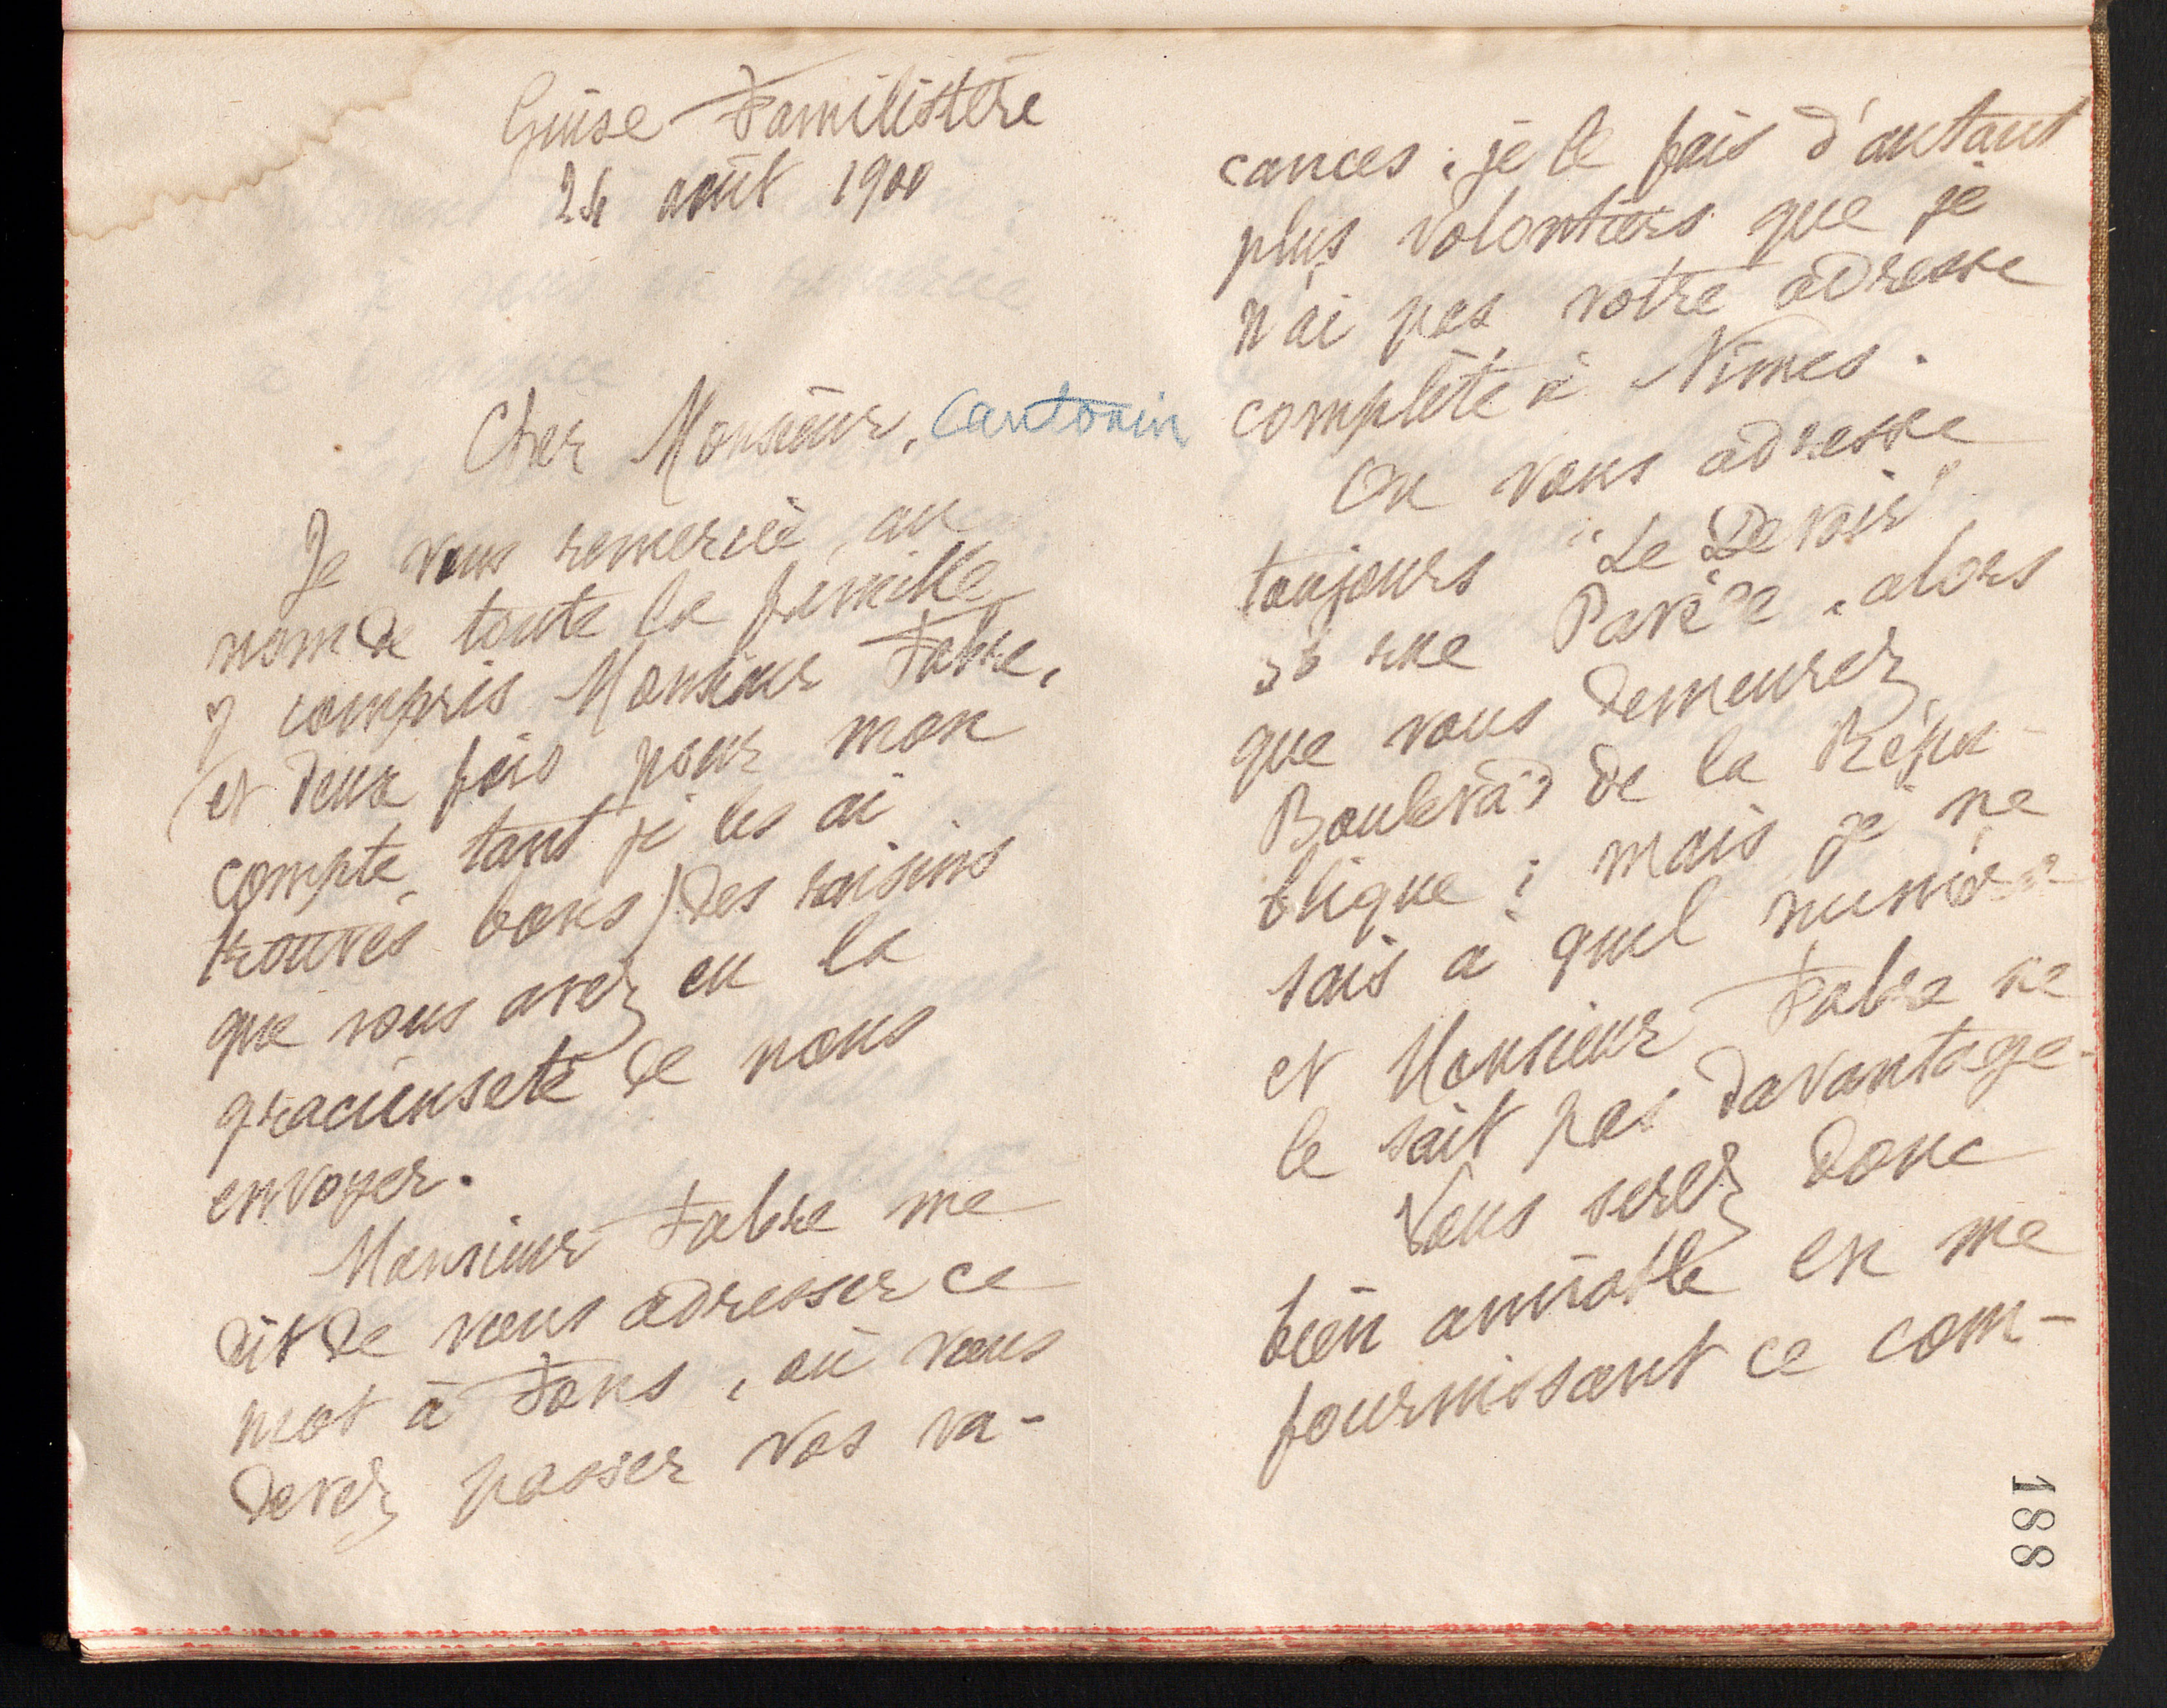 Guise Familistère
24 août 1900
Cher Monsieur, Cantonin
Je vous remercie au
nom de toute la famille
y compris Monsieur Fabre,
(et deux fois pour mon
compte, tant je les ai
trouvés bons) des raisins
que vous avez eu la
gracieuseté de nous
envoyer.
Monsieur Fabre me
dit de vous adresser ce
mot à Fons, où vous
devez passer vos va-
cances ; je le fais d'autant
plus volontiers que je
n'ai pas votre adresse
complète à Nîmes.
On vous adresse
toujours "Le Devoir"
rue Pavée, alors
que vous demeurez
Boulevard de la Répu-
blique ; mais je ne
sais à quel numéro
et Monsieur Fabre ne
le sait pas davantage.
Vous serez donc
bien aimable en me
fournissant ce com-
188